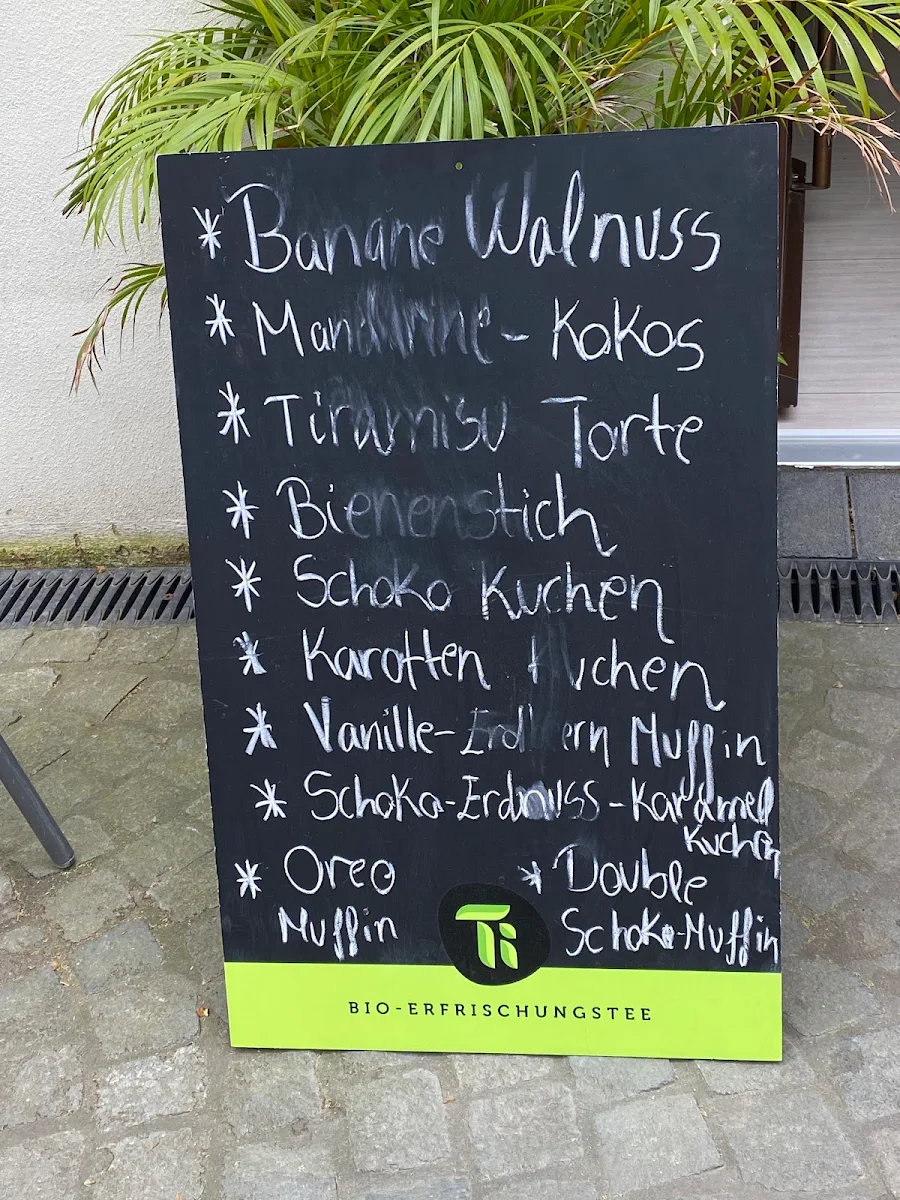 * Banane Walnuss
* Mandarine - Kokos
* Tiramisu Torte
* Bienenstich
* Schoko Kuchen
* Karotten Kuchen
* Vanille-Erdbeern Muffin
* Schoko-Erdnuss-Karamell
Kuchen
* Oreo
Muffin
* Double
Schoko-Muffin
Ti
BIO-ERFRISCHUNGSTEE